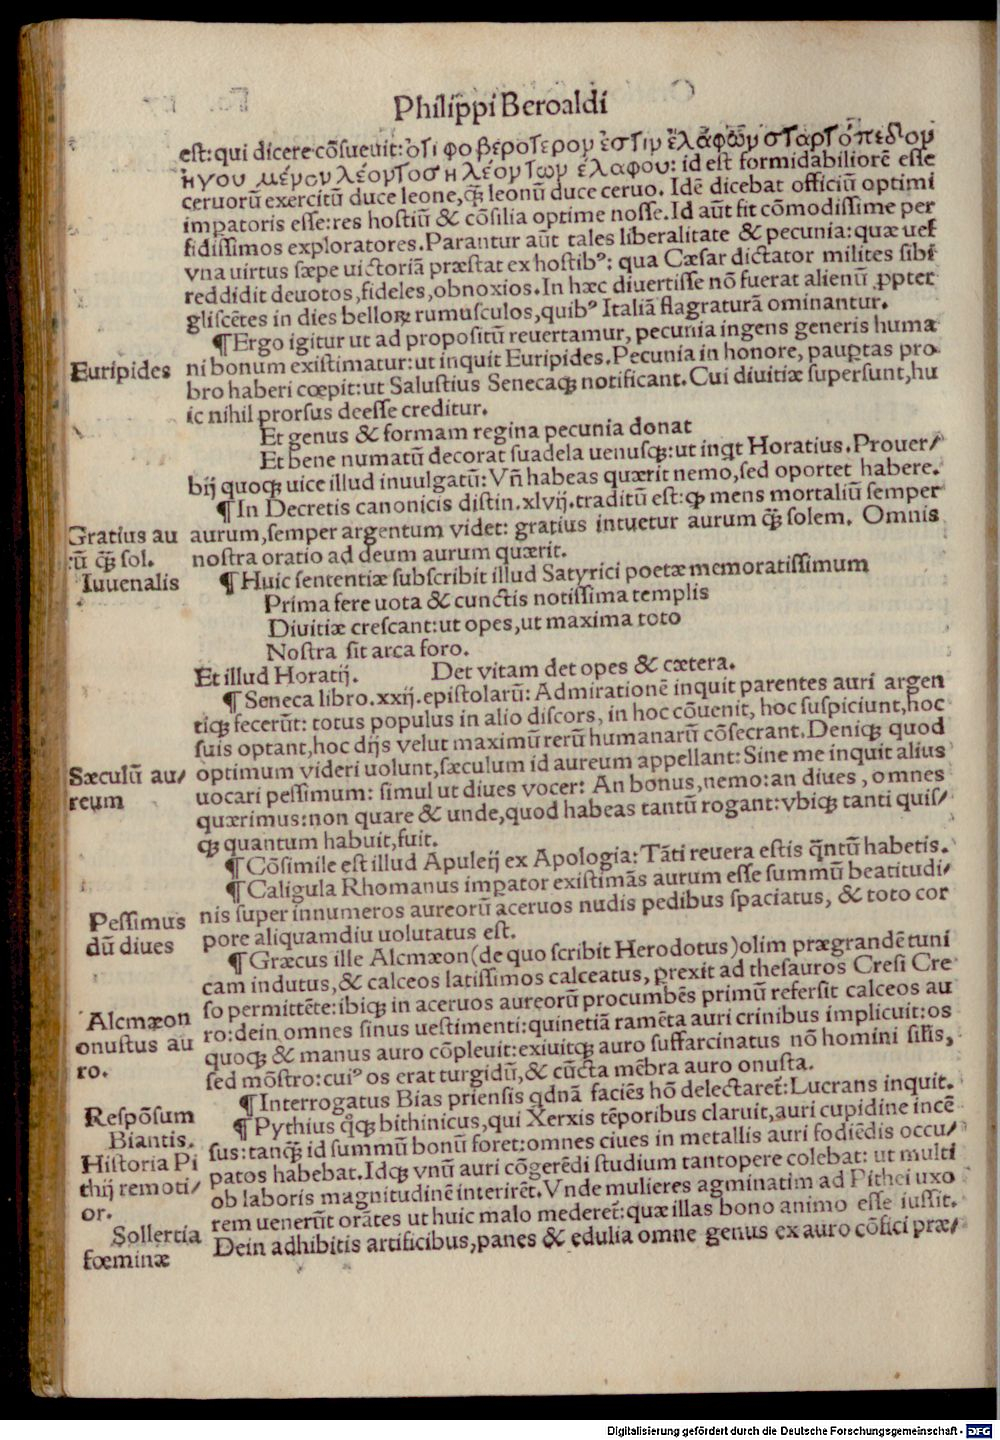 Philippi Beroaldi
est: qui dicere cõsueuit: ὁτι φο βεροτερον ἐστιν ἐλάφῶν σταρτόπεδον
ἡγου μένον λέοντοσ ἢ λέοντων ἐλαφου: id est formidabiliorē esse
ceruorũ exercitũ duce leone, q̃ꝫ leonũ duce ceruo. Idē dicebat officiũ optimi
impatoris esse: res hostiũ & cõsilia optime nosse. Id aũt fit cõmodissime per
fidissimos exploratores. Parantur aũt tales liberalitate & pecunia: quæ uel
vna uirtus sæpe uictoriã præstat ex hostibꝰ: qua Cæsar dictator milites sibi
reddidit deuotos, fideles, obnoxios. In hæc diuertisse nõ fuerat alienũ ꝓpter
gliscētes in dies belloꝝ rumusculos, quibꝰ Italiã flagraturã ominantur.
¶ Ergo igitur ut ad propositũ reuertamur, pecunia ingens generis huma
Euripides
ni bonum existimatur: ut inquit Euripides. Pecunia in honore, paup̱tas pro-
bro haberi cœpit: ut Salustius Senecaqꝫ notificant. Cui diuitiæ supersunt, hu
ic nihil prorsus deesse creditur.
Et genus & formam regina pecunia donat
Et bene numatũ decorat suadela uenusqꝫ: ut inqt Horatius. Prouer/
bij quoqꝫ uice illud inuulgatũ: Vñ habeas quærit nemo, sed oportet habere.
¶ In Decretis canonicis distin. xlvij. traditũ est: ꝙ mens mortaliũ semper
Gratius au
aurum, semper argentum videt: gratius intuetur aurum q̃ꝫ solem. Omnis
rũ q̃ꝫ sol.
nostra oratio ad deum aurum quærit.
Iuuenalis
¶ Huic sententiæ subscribit illud Satyrici poetæ memoratissimum
Prima fere uota & cunctis notissima templis
Diuitiæ crescant: ut opes, ut maxima toto
Nostra sit arca foro.
Et illud Horatij. Det vitam det opes & cætera.
¶ Seneca libro. xxij. epistolarũ: Admirationē inquit parentes auri argen
tiqꝫ fecerũt: totus populus in alio discors, in hoc cõuenit, hoc suspiciunt, hoc
suis optant, hoc dijs velut maximũ rerũ humanarũ cõsecrant. Deniqꝫ quod
Sæculũ au/
optimum videri uolunt, sæculum id aureum appellant: Sine me inquit alius
reum
uocari pessimum: simul ut diues vocer: An bonus, nemo: an diues, omnes
quærimus: non quare & unde, quod habeas tantũ rogant: vbiqꝫ tanti quis/
qꝫ quantum habuit, fuit.
¶ Cõsimile est illud Apuleij ex Apologia: Tãti reuera estis q̃ntũ habetis.
¶ Caligula Rhomanus impator existimãs aurum esse summũ beatitudi/
Pessimus
nis super innumeros aureorũ aceruos nudis pedibus spaciatus, & toto cor
dũ diues
pore aliquamdiu uolutatus est.
¶ Græcus ille Alcmæon (de quo scribit Herodotus) olim prægrandē tuni
cam indutus, & calceos latissimos calceatus, p̱rexit ad thesauros Cresi Cre
Alcmæon
so permittēte: ibiqꝫ in aceruos aureorũ procumbēs primũ refersit calceos au
onustus au
ro: dein omnes sinus uestimenti: quinetiã ramēta auri crinibus implicuit: os
ro.
quoqꝫ & manus auro cõpleuit: exiuitqꝫ auro suffarcinatus nõ homini sil̃is,
sed mõstro: cuiꝰ os erat turgidũ, & cũcta mēbra auro onusta.
Respõsum
¶ Interrogatus Bias priensis qdnã faciēs hõ delectaret̃: Lucrans inquit.
Biantis.
¶ Pythius qͥqꝫ bithinicus, qui Xerxis tēporibus claruit, auri cupidine incē
Historia Pi
sus: tanq̃ꝫ id summũ bonũ foret: omnes ciues in metallis auri fodiēdis occu/
thij remoti/
patos habebat. Idqꝫ vnũ auri cõgerēdi studium tantopere colebat: ut multi
or.
ob laboris magnitudinē interirēt. Vnde mulieres agminatim ad Pithei uxo
Sollertia
rem uenerũt orãtes ut huic malo mederet̃: quæ illas bono animo esse iussit.
fœminæ
Dein adhibitis artificibus, panes & edulia omne genus ex auro cõfici præ/
Digitalisierung gefördert durch die Deutsche Forschungsgemeinschaft - DFG